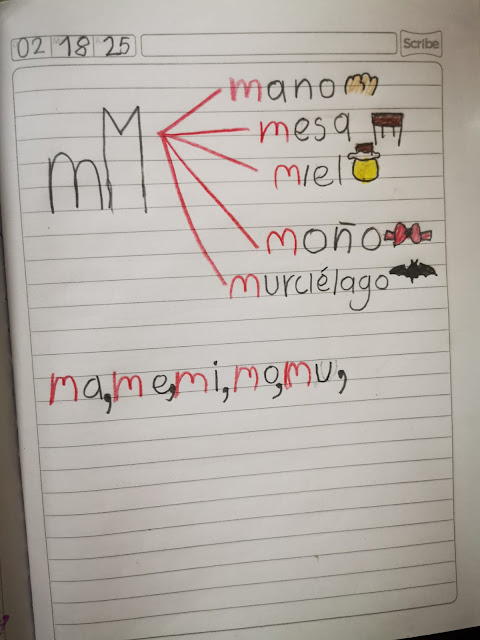 02 18 25
Scribe
mano
mesa
mM
miel
moño
murciélago
ma, me, mi, mo, mu,